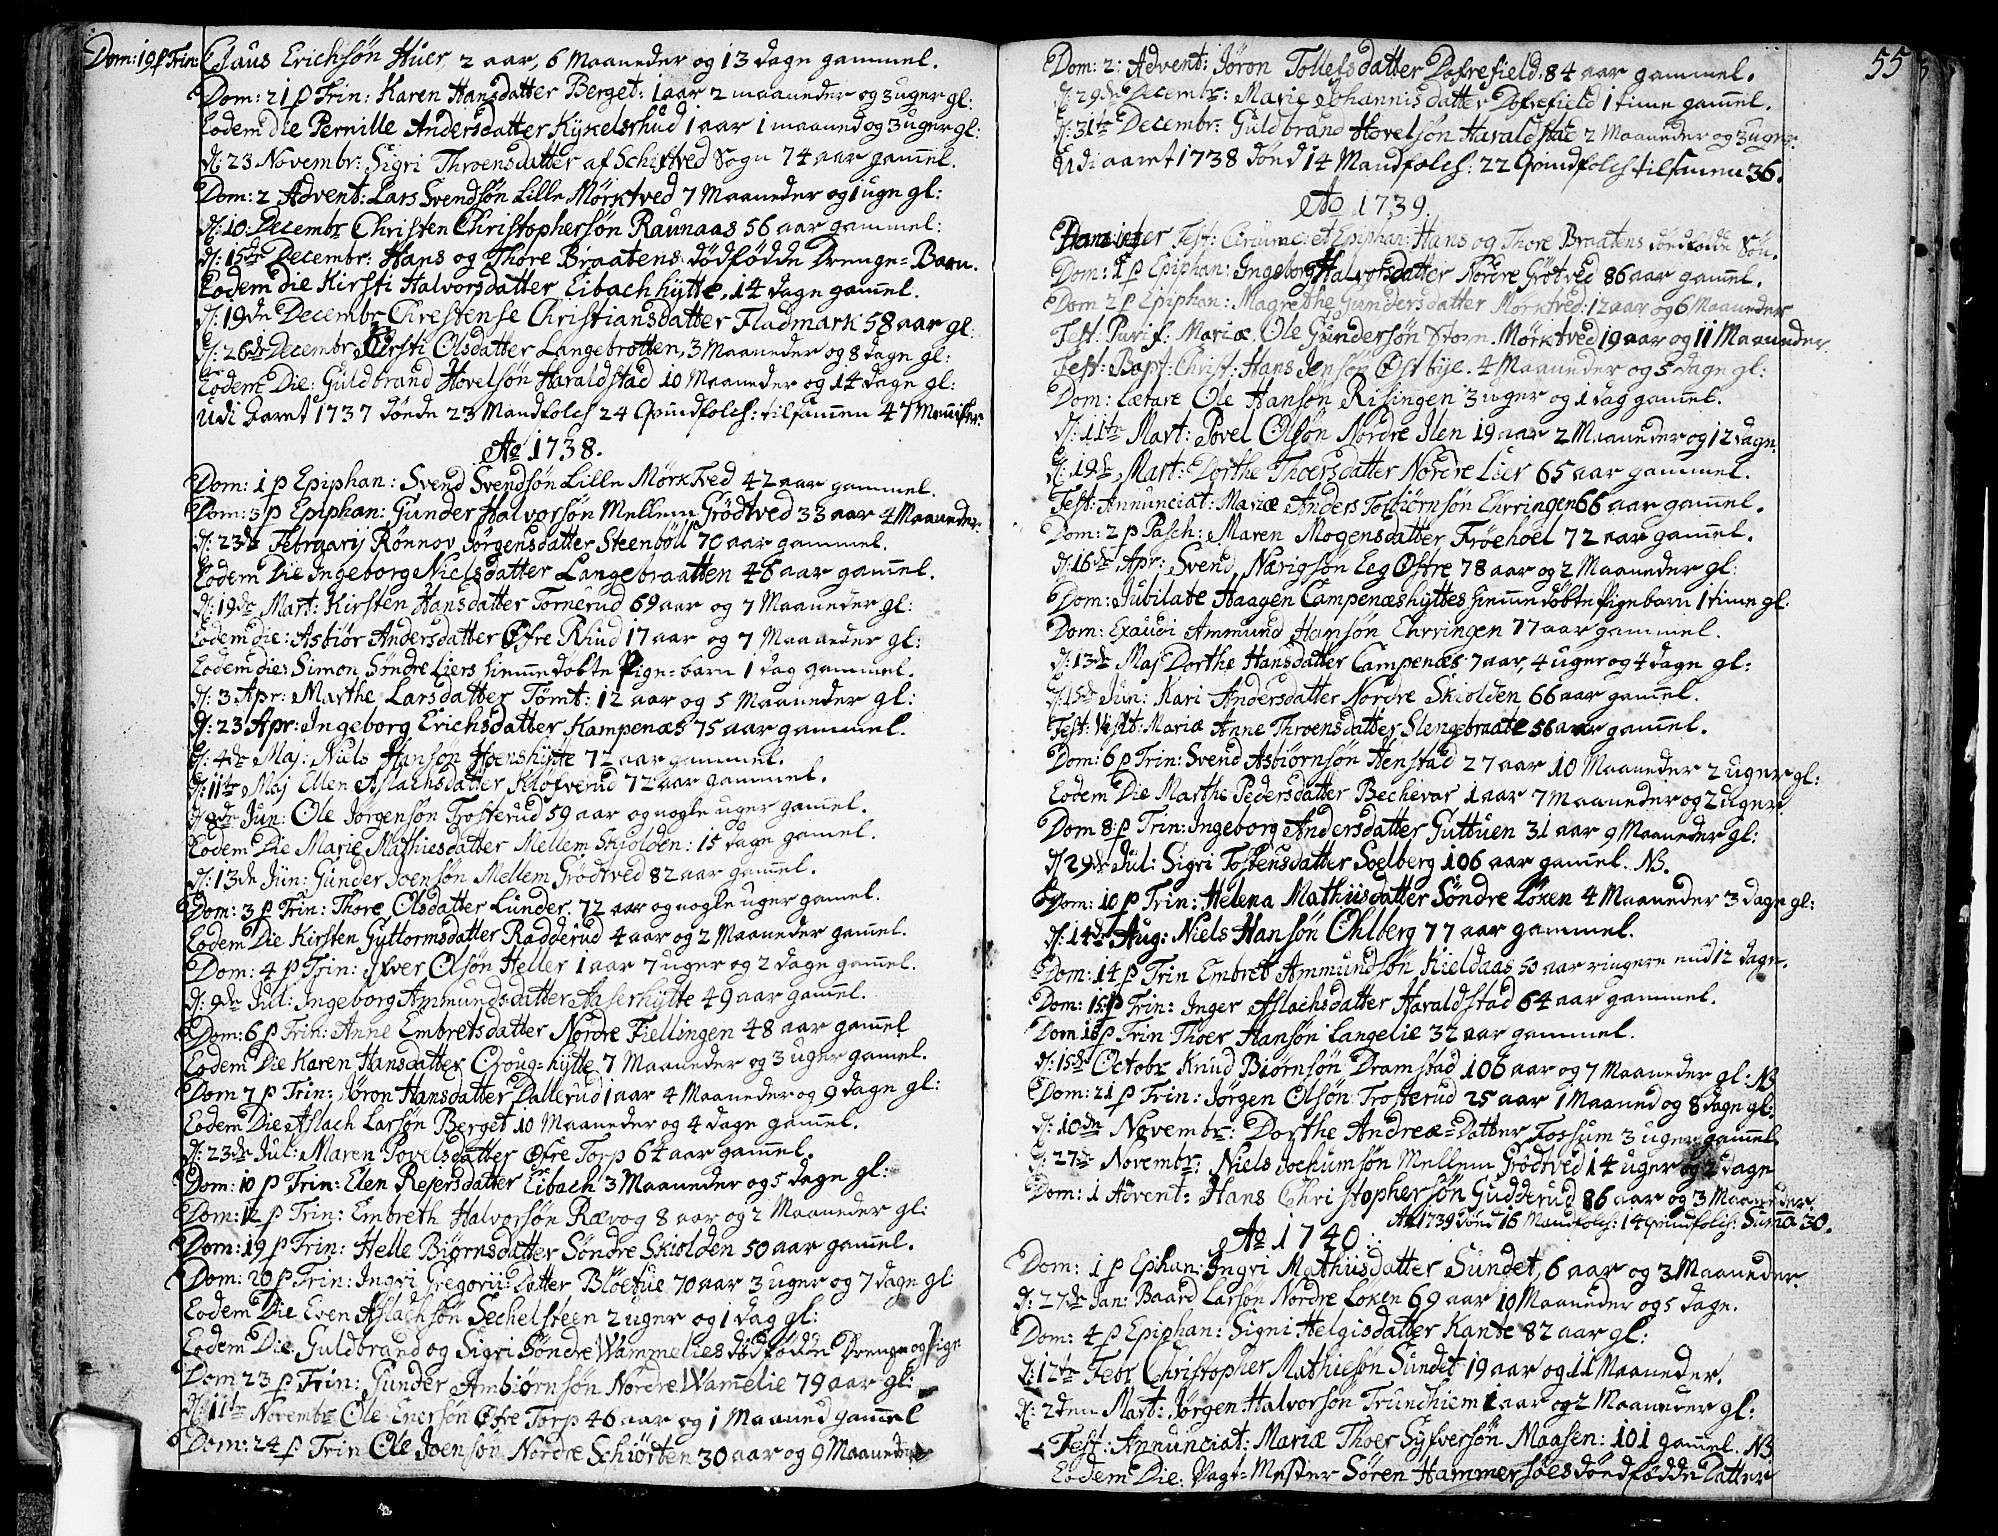 Dom: 19 p Trin: Claus Erichsøn Huer, 2 aar, 6 Maaneder og 13 dage gammel.
Dom: 21 p Trin: Karen Hansdatter Berget: 1 aar 2 maaneder og 3 uger gl:
Eodem die Pernille Andersdatter Kykelsrhud 1 aar 1 maaned og 3 uger gl:
d: 23 Novembr: Sigri Throensdatter af Schiftved Sogn 74 aar gamel.
Dom: 2 Advent: Lars Svendsøn Lille Mørktved 7 Maaneder og 1 uge gl:
d: 10 Decembr Christen Christophersøn Raunaas 56 aar gammel:
d: 15de Decembr: Hans og Thore Braatens dødfødde Drenge-Barn.
Eodem die Kirsti Halvorsdatter Eibachhytte, 14 dage gamel.
d: 19de Decembr Chrestense Christiansdatter Fladmark 58 aar gl:
d: 26de Decembr Kirsti Olsdatter Langebrotten, 3 Maaneder og 8 dage gl:
Eodem Die: Guldbrand Hovelsøn Haraldstad 10 Maaneder og 14 dage gl:
Udi Aaret 1737 dønde 23 Mandfolch 24 Qvindfolch: tilsamen 47 Menisker.
Ao 1738.
Dom: 1 p Epiphan: Svend Svendsøn Lille Mørktved 42 aar gammel.
Dom: 3 p Epiphan: Gunder Halvorsøn Mellem Grødtved 33 aar 4 Maaneder.
d: 23de Februarij Rønnov Jørgensdatter Steenbøll 70 aar gammel.
Eodem Die Ingeborg Nielsdatter Langebraatten 46 aar gamel.
d: 19de Mart: Kirsten Hansdatter Tornerud 69 aar og 7 Maaneder gl:
Eodem die: Asbiør Andersdatter Øfre Rhud 17 aar og 7 Maaneder gl:
Eodem die: Simon Søndre Liers hiemmedøbte Pige-barn 1 dag gammel.
d: 3 Apr: Marthe Larsdatter Tømt: 12 aar og 5 Maaneder gl:
d: 23 Apr: Ingeborg Erichsdatter Kampenæs 75 aar gammel.
d: 4de Maj: Niels Hansøn Hoenshytte 72 aar gammel.
d: 11te Maj Ellen Aslachsdatter Kløfverud 72 aar gammel.
d: 8de Jun: Ole Jørgensøn Trosterud 59 aar og nogle uger gamel.
Eodem Die Marie Mathiesdatter Mellem Skjolden: 15 dage gamel.
d: 13de Jun: Gunder Joensøn Mellem Grødtved 82 aar gammel.
Dom: 3 p Trin: Thore Olsdatter Lunder. 72 aar og nogle uger gamel.
Eodem Die Kirsten Guttormsdatter Radderud 4 aar og 2 Maaneder gamel.
Dom: 4 p Trin: Ifver Olsøn Heller 1 aar 7 uger og 2 dage gamel.
d: 9de Jul: Ingeborg Ammundsdatter Aaserhytte 49 aar gamel.
Dom: 6 p Trin: Anne Embretsdatter Nordre Fiellingen 48 aar gamel
Eodem Die Karen Hansdatter Croug-hytte 7 Maaneder og 3 uger gamel.
Dom 7 p Trin: Jøron Hansdatter Dallerud 1 aar 4 Maaneder og 9 dage gl:
Eodem Die Aslach Larsøn Berget 10 Maaneder og 4 dage gammel.
d: 23de Jul: Maren Povelsdatter Øfre Torp 64 aar gammel.
Dom: 10 p Trin: Elen Reiersdatter Eibach 3 Maaneder og 5 dage gl:
Dom: 12 p Trin: Embreth Halvorsøn Rævog 8 aar og 2 Maaneder gl:
Dom: 19 p Trin: Helle Biørnsdatter Søndre Skiolden 50 aar gamel.
Dom: 20 p Trin: Ingri Gregorii-Datter Bløetue 70 aar 3 uger og 7 dage gl
Eodem Die Even Aslachsøn Sechelsteen 2 uger og 1 dag gl:
Eodem Die Guldbrand og Sigri Søndre Wammelies dødfødde Drenge og Pige
Dom 23 p Trin: Gunder Ambiørnsøn Nordre Wamelie 79 aar gl:
d: 11te Novembr Ole Enersøn Øfre Torp 46 aar og 1 Maaned gamel
Dom: 24 p Trin Ole Joensøn Nordre Schiørten 30 aar og 9 Maaneder
55
Dom: 2: Advent: Jøron Tollefsdatter Dofrefield, 84 aar gammel.
d: 29de Decembr: Marie Johannisdatter Dofrefield 1 time gamel.
d: 31te Decembr: Guldbrand Hovelsøn Haraldstad 2 Maaneder og 3 uger.
Udi aaret 1738 dönd 14 Mandfolch: 22 Qvindfolch tilsamen 36.
Ao 1739.
Fest: Circumc: et Epiphan: Hans og Thore Braatens dødfødde Søn.
Dom: 1 p Epiphan: Ingeborg Halvorsdatter Nordre Grøtved 86 aar gamel.
Dom 2 p Epiphan: Magrethe Gundersdatter Mørktved: 12 aar og 6 Maaneder
Fest: Purif: Mariæ Ole Gundersøn Stom. Mørktved 19 aar og 11 Maaneder
Fest: Bapt: Christ: Hans Jensøn Østbye. 4 Maaneder og 5 dage gl:
Dom: Lætare Ole Hansøn Risingen 3 uger og 1 dag gamel.
d: 11te Mart: Povel Olsøn Nordre Ilen 19 aar 2 Maaneder og 12 dage.
d: 19de Mart: Dorthe Thoersdatter Nordre Lier 65 aar gammel.
Fest: Annunciat: Mariæ Anders Torbiørnsøn Ehrringen 66 aar gammel.
Dom: 2 p Pasch: Maren Mogensdatter Frøehoel 72 aar gamel.
d: 16de Apr: Svend Nærigsøn Eeg Østre 78 aar og 2 Maaneder gl:
Dom: Jubilate Haagen Campenæshyttes hiemmedøbte Pigebarn 1 time gl.
Dom: Exaudi Ammund Hansøn Ehrringen 77 aar gammel.
d: 13de Maj Dorthe Hansdatter Campenæs 7 aar, 4 uger og 4 dage gl:
d: 15de Jun: Kari Andersdatter Nordre Skiolden 66 aar gamel.
Fest: Visit: Mariæ Anne Throensdatter Slengebraate 56 aar gammel.
Dom: 6 p Trin: Svend Asbiørnsøn Henstad 27 aar 10 Maaneder 2 uger gl:
Eodem Die Marthe Pedersdatter Bechevar 1 aar 7 Maaneder og 2 uger.
Dom 8 p Trin: Ingeborg Andersdatter Guttuen 31 aar 9 Maaneder gl:
d: 29de Jul: Sigri Tostensdatter Soelberg 106 aar gamel. NB.
Dom: 10 p Trin: Helena Mathiisdatter Søndre Løken 4 Maaneder 3 dage gl:
d: 14de Aug: Niels Hansøn Ohlberg 77 aar gammel.
Dom: 14 p Trin Embret Ammundsøn Kieldaas 50 aar ringere end 12 dage.
Dom: 15 p Trin: Inger Aslachsdatter Haraldstad 64 aar gammel.
Dom 18 p Trin Thoer Hansøn Langelie 32 aar gammel.
d: 15de Octobr Knud Biørnsøn Dramstad 106 aar og 7 Maaneder gl: NB
Dom: 21 p Trin: Jørgen Olsøn Trosterud 25 aar 1 Maaned og 8 dage gl:
d: 10de Novembr: Dorthe Andreæ-Datter Fossum 3 uger gammel
d: 27de Novembr: Niels Jochumsøn Mellem Grødtved 14 uger og 2 dage
Dom: 1 Advent: Hans Christophersøn Gudderud 86 aar og 3 Maaneder.
Ao 1739 dönd 16 Mandfolch: 14 Qvindfolch: Suma 30.
Ao 1740.
Dom: 1 p Ephan: Ingri Mathiisdatter Sundet, 6 aar og 3 Maaneder
d: 27de Jan: Baard Larsøn Nordre Loken 69 aar 10 Maaneder og 5 dage.
Dom: 4 p Epiphan: Signi Helgisdatter Kante 82 aar gl:
d: 12te Febr Christopher Mathiesøn Sundet 19 aar og 11 Maaneder.
d: 2den Mart: Jørgen Halvorsøn Trundhiem 1 aar og 2 Maaneder gl:
Fest: Annunciat: Mariæ Thoer Syfversøn Maasen: 101 gamel. NB
Eodem Die: Vagt-Mester Søren Hammersøes dødfødde Datter